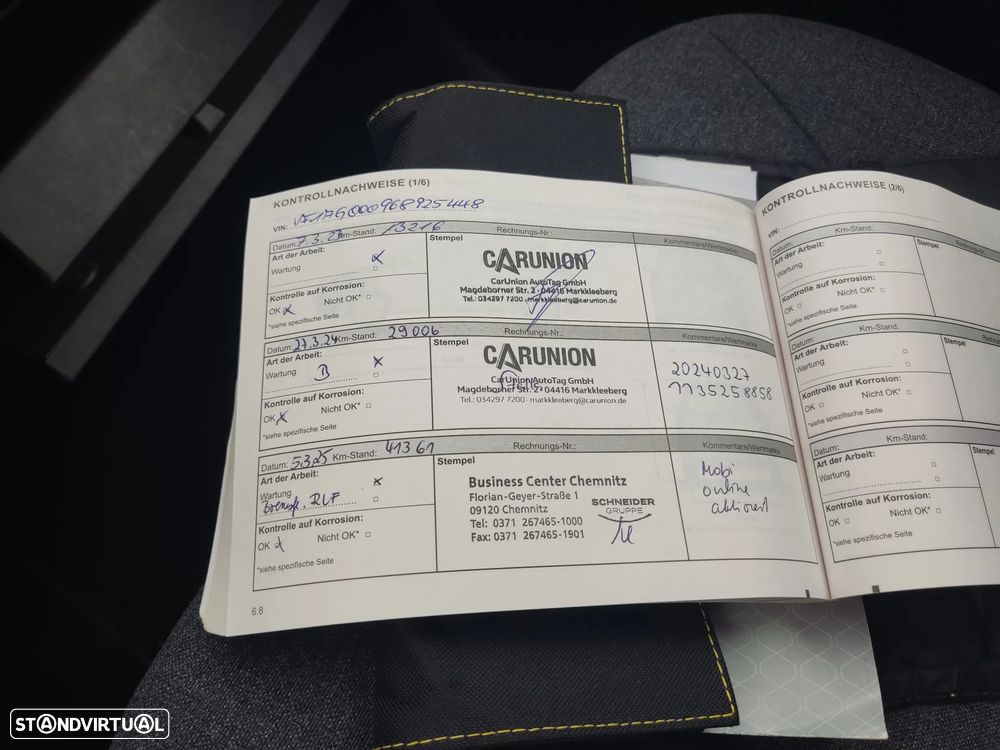 KONTROLLNACHWEISE (1/6)
VIN: VF17G000968925448
Datum: 7.3.23 Km-Stand: 13216
Rechnungs-Nr.:
Kommentare/Wertmarke
Art der Arbeit:
Wartung
Stempel
CARUNION
CarUnion AutoTag GmbH
Magdeborner Str. 2 · 04416 Markkleeberg
Tel.: 034297 7200 · markkleeberg@carunion.de
Kontrolle auf Korrosion:
OK Nicht OK*
*siehe spezifische Seite
Datum: 27.3.24 Km-Stand: 29006
Rechnungs-Nr.:
Kommentare/Wertmarke
Art der Arbeit:
Wartung
B
Stempel
CARUNION
CarUnion AutoTag GmbH
Magdeborner Str. 2 · 04416 Markkleeberg
Tel.: 034297 7200 · markkleeberg@carunion.de
20240327
1135258858
Kontrolle auf Korrosion:
OK Nicht OK*
*siehe spezifische Seite
Datum: 5.3.25 Km-Stand: 41361
Rechnungs-Nr.:
Kommentare/Wertmarke
Art der Arbeit:
Wartung
RLF
Stempel
Business Center Chemnitz
Florian-Geyer-Straße 1
09120 Chemnitz
Tel: 0371 267465-1000
Fax: 0371 267465-1901
SCHNEIDER
GRUPPE
Mobi
online
aktiviert
Kontrolle auf Korrosion:
OK Nicht OK*
*siehe spezifische Seite
6.8
KONTROLLNACHWEISE (2/6)
VIN:
Datum: Km-Stand:
Art der Arbeit:
Wartung
Stempel
Kontrolle auf Korrosion:
OK Nicht OK*
*siehe spezifische Seite
Datum: Km-Stand:
Art der Arbeit:
Wartung
Stempel
Kontrolle auf Korrosion:
OK Nicht OK*
*siehe spezifische Seite
Datum: Km-Stand:
Art der Arbeit:
Wartung
Stempel
Kontrolle auf Korrosion:
OK Nicht OK*
*siehe spezifische Seite
STANDVIRTUAL